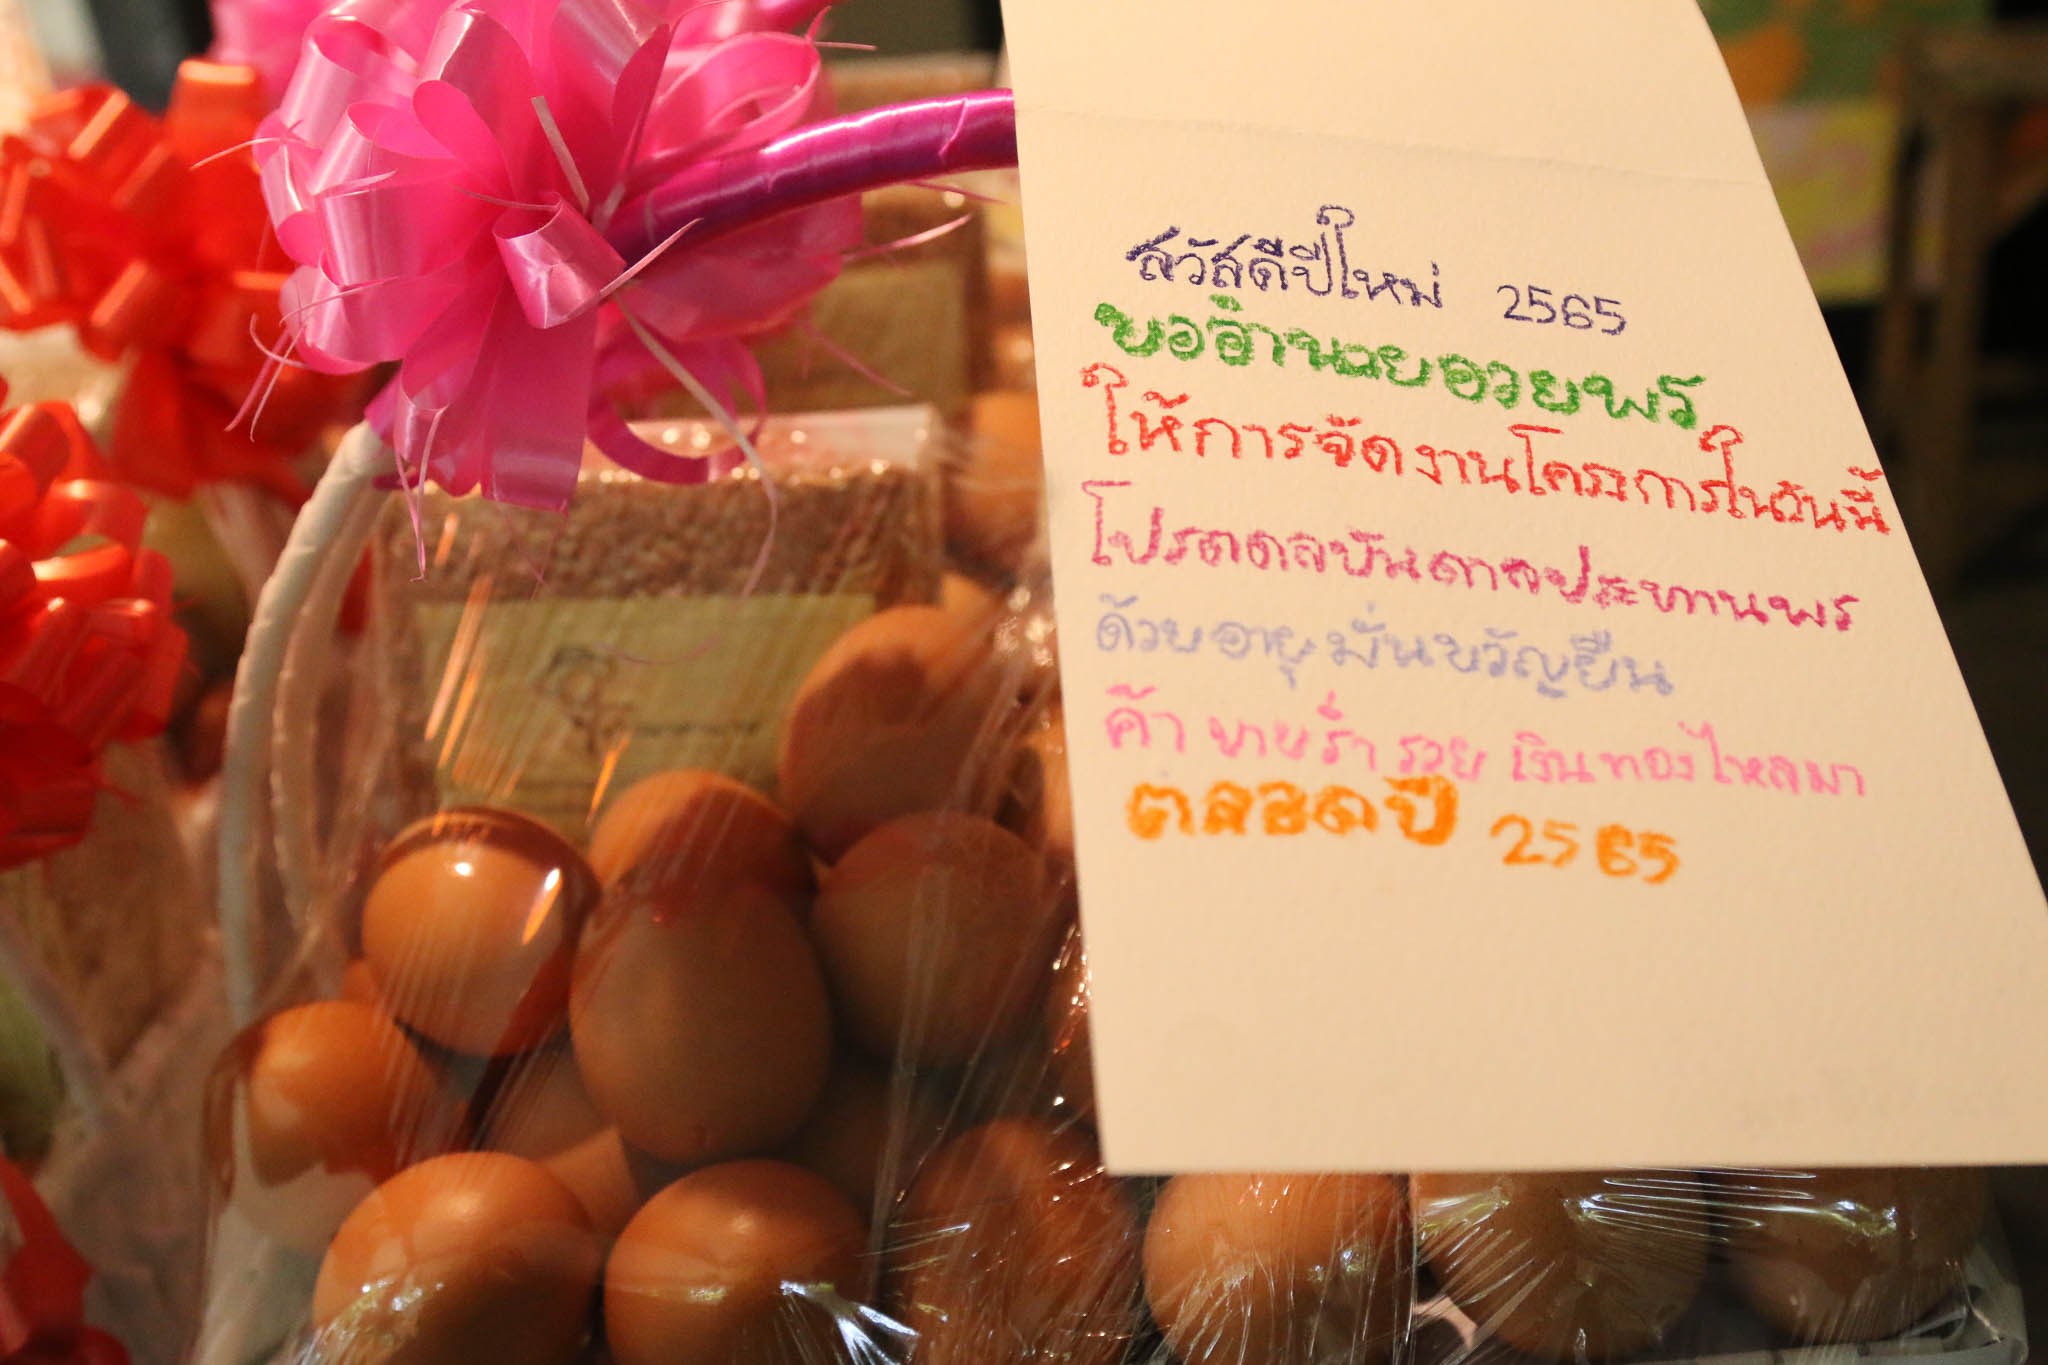 สวัสดีปีใหม่ 2565
ขออำนวยอวยพร
ให้การจัดงานโครงการในวันนี้
โปรดดลบันดาลประทานพร
ด้วยอายุมั่นขวัญยืน
ค้า ขายร่ำ รวย เงินทองไหลมา
ตลอดปี 2565